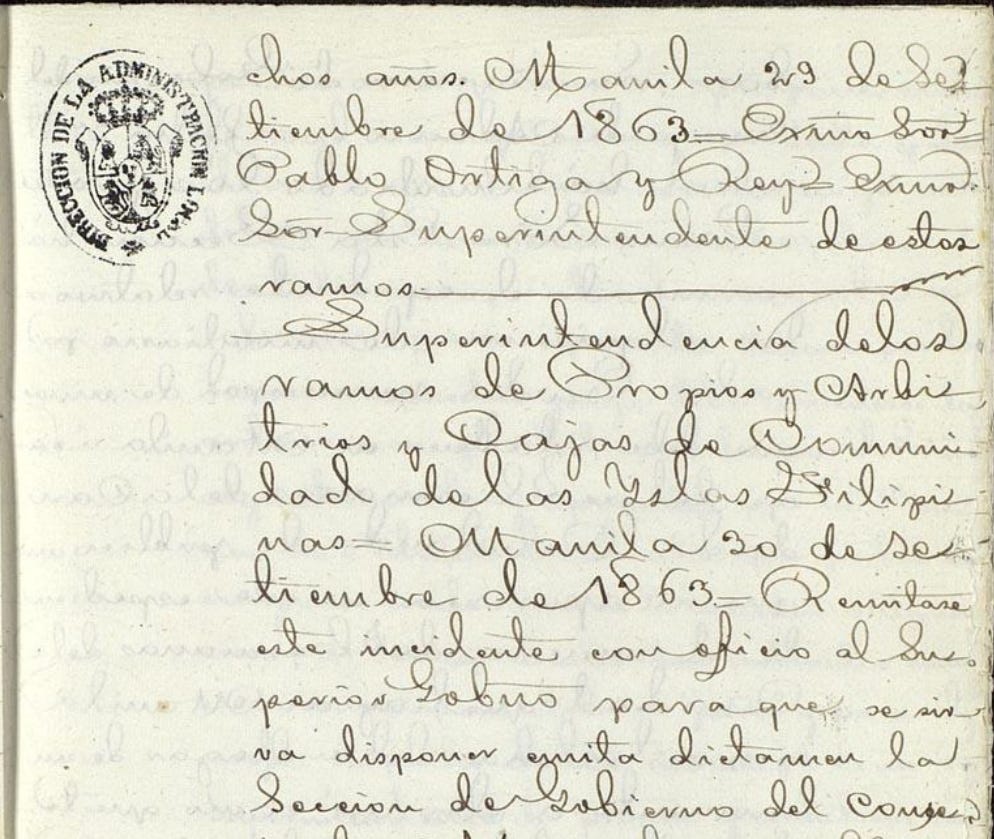 DIRECCION DE LA ADMINISTRACION LOCAL
chos años. Manila 29 de Se-
tiembre de 1863 = Exmo Sor =
Pablo Ortiga y Rey = Exmo.
Sor Superintendente de estos
ramos.
Superintendencia delos
ramos de Propios y Arbi-
trios y Cajas de Comuni-
dad de las Yslas Filipi-
nas = Manila 30 de Se-
tiembre de 1863 = Remitase
este incidente con oficio al Su-
perior Gobno para que se sir-
va disponer emita dictamen la
Seccion de Gobierno del Conse-